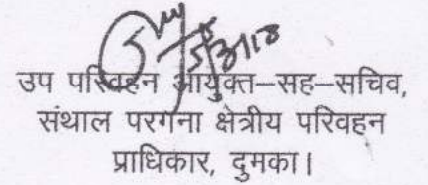 5/3/18
उप परिवहन आयुक्त–सह–सचिव,
संथाल परगना क्षेत्रीय परिवहन
प्राधिकार, दुमका।